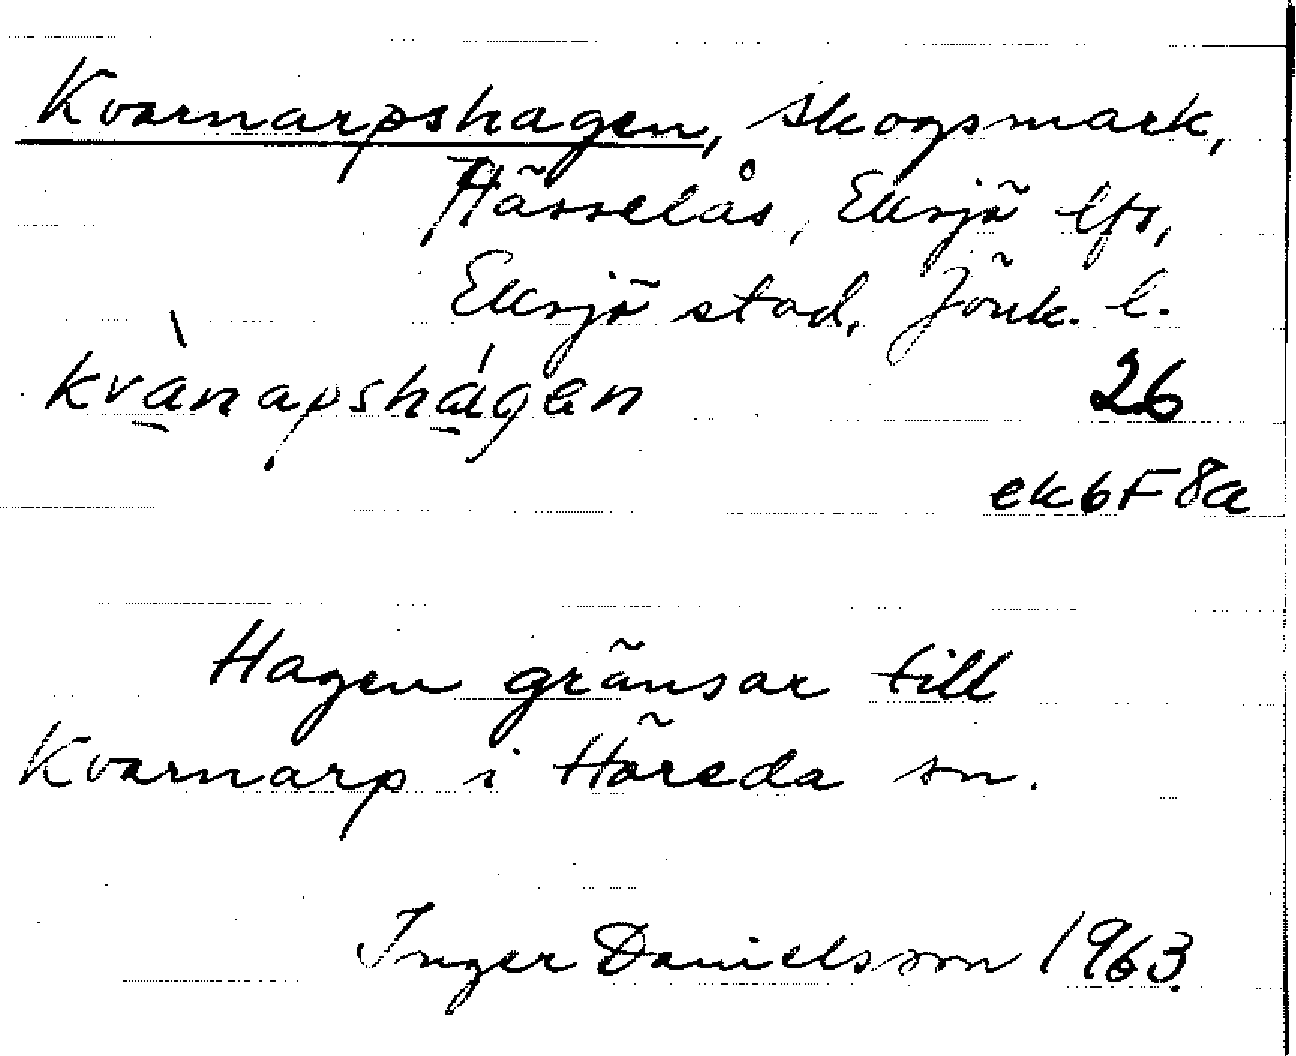 Kvarnarpshagen, skogsmark,
Hässelås, Eksjö lfs,
Eksjö stad, Jönk. l.
kvànapshágen 26
ek 6F8a
Hagen gränsar till
Kvarnarp i Höreda sn.
Inger Danielsson 1963.